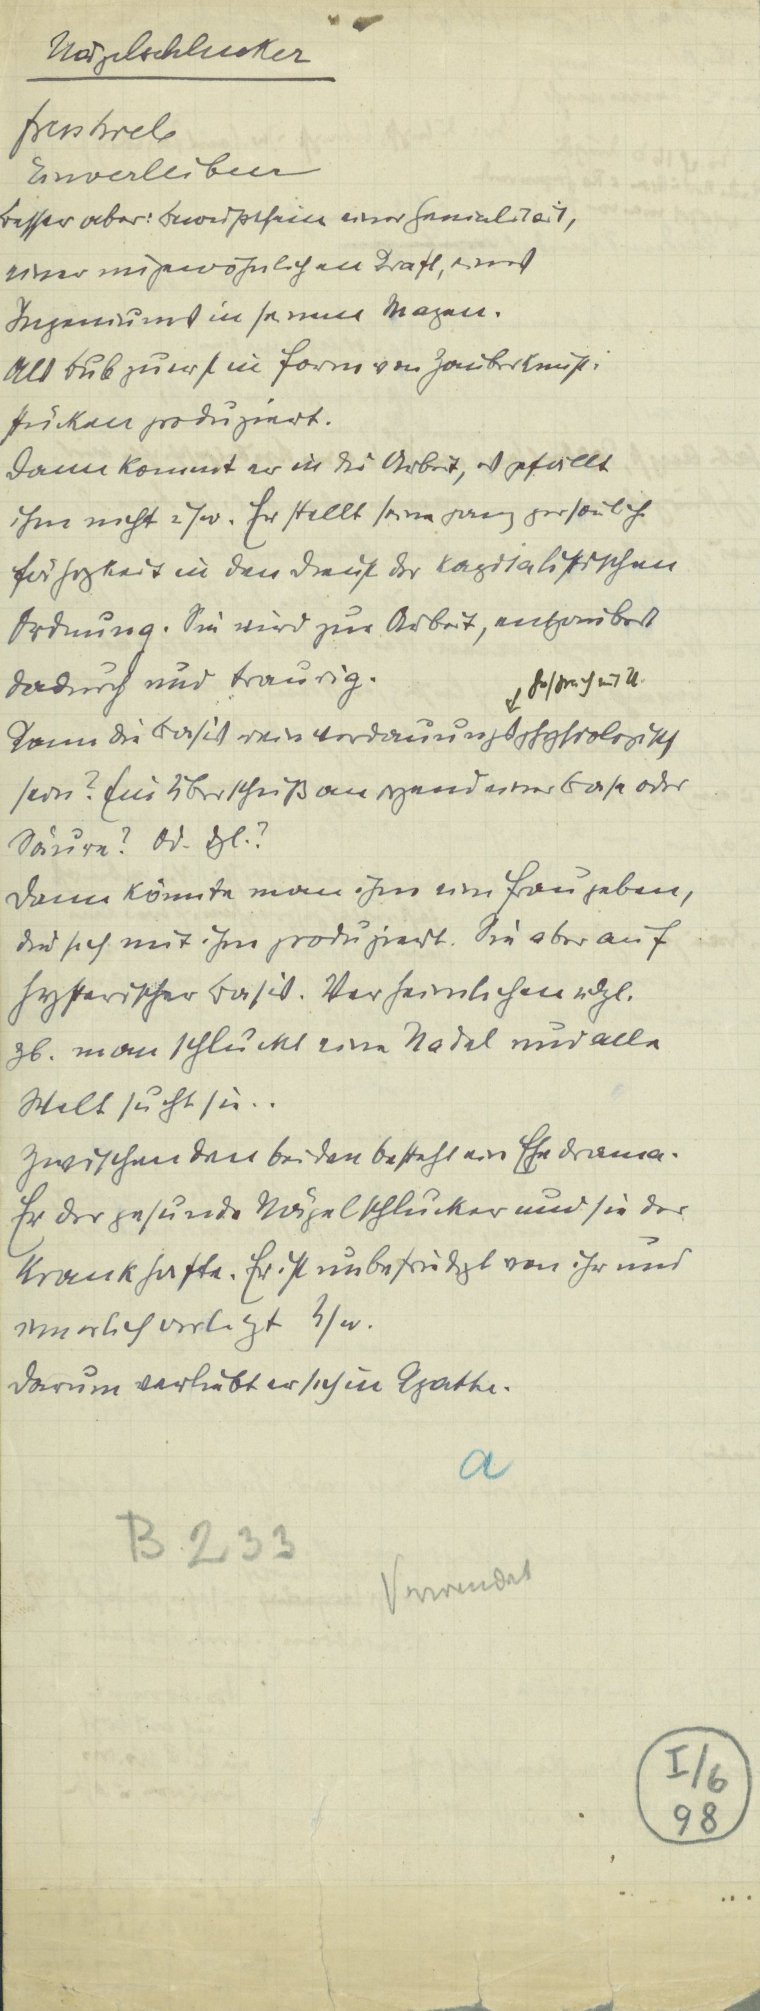 Nägelschlucker
Fresstrieb
Einverleiben
Besser aber: Bewußtsein einer Genialität,
einer ungewöhnlichen Kraft, eines
Ingeniums in seinem Magen.
Als Bub zuerst in Form von Zauberkunst-
stücken produziert.
Dann kommt er in die Arbeit, es gefällt
ihm nicht usw. Er stellt seine ganz persönliche
Fähigkeit in den Dienst der kapitalistischen
Ordnung. Sie wird zur Arbeit, entzaubert
dadurch und traurig.
Gespräch mit U.
Kann die Basis rein verdauungsphysiologisch
sein? Ein Überschuß an irgend einer Base oder
Säure? Od. dgl.?
Dann könnte man ihm eine Frau geben,
die sich mit ihm produziert. Sie aber auf
hysterischer Basis. Verheimlichen udgl.
zb. man schluckt eine Nadel und alle
Welt sucht sie..
Zwischen den beiden besteht ein Ehedrama.
Er der gesunde Nägelschlucker und sie der
Krankhafte. Er ist unbefriedigt von ihr und
innerlich verletzt usw.
Darum verliebt er sich in Agathe.
a
B 233
Verwendet
I/6
98